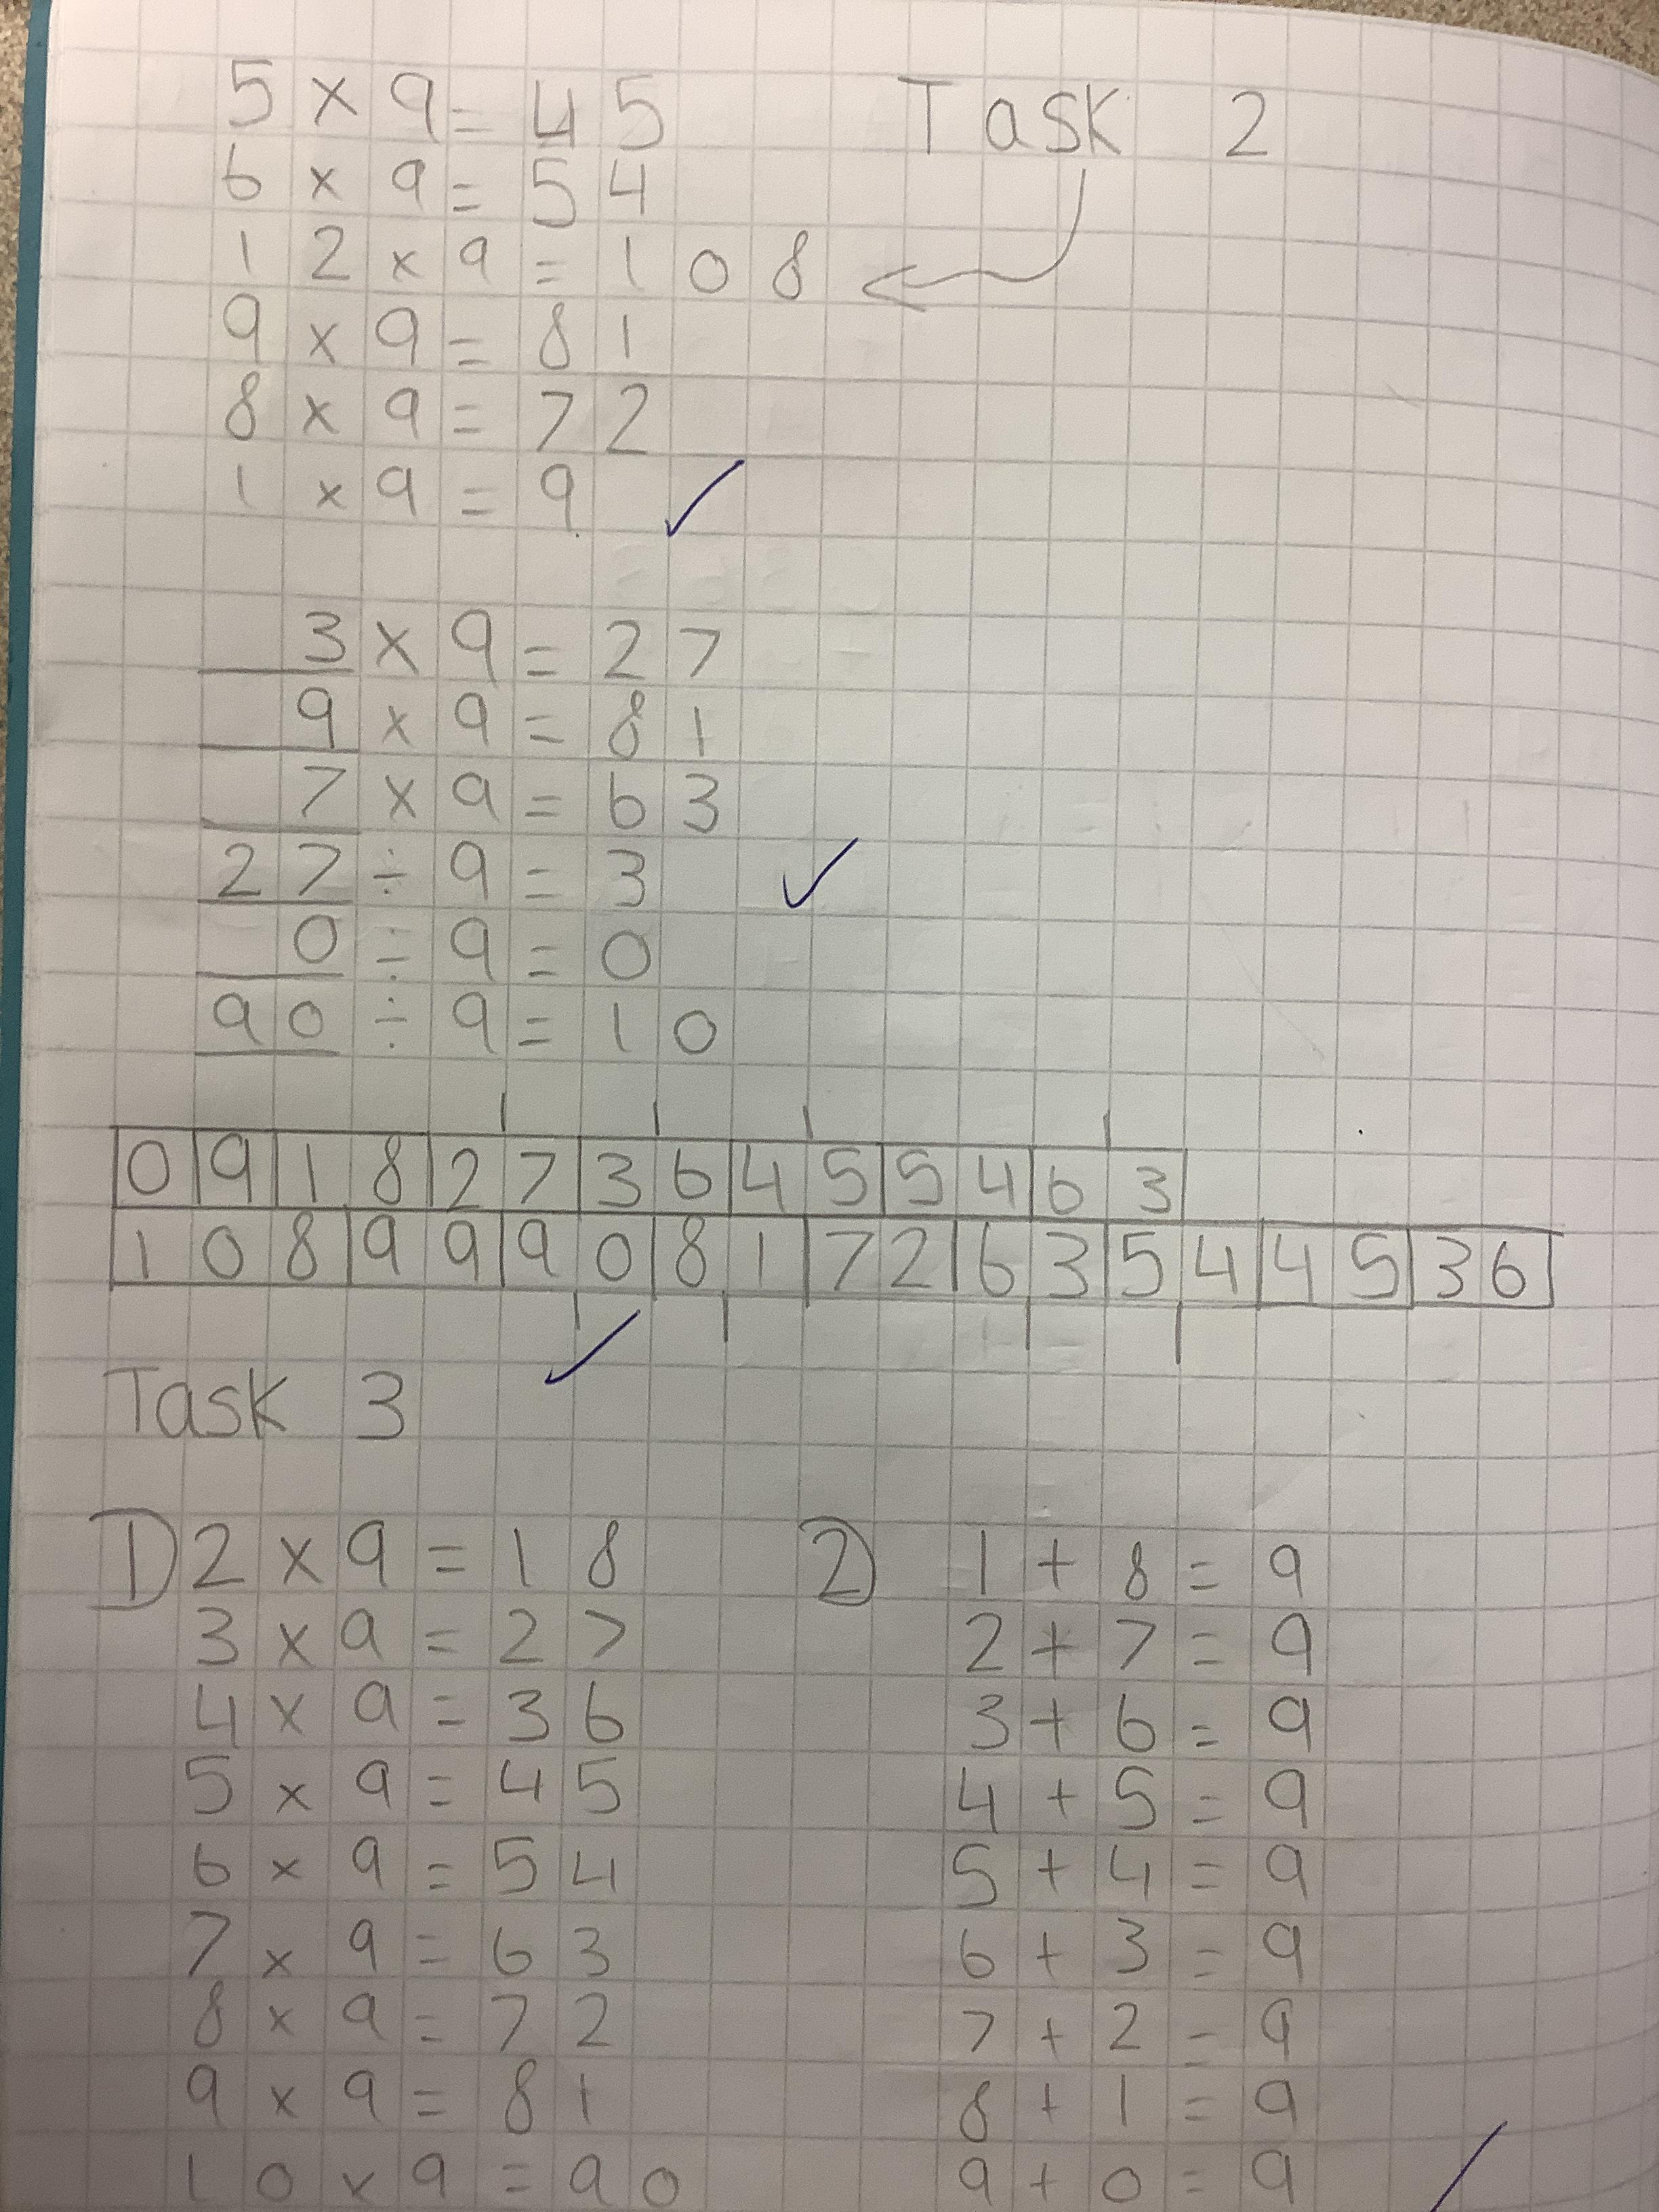 5 × 9 = 45
Task 2
6 × 9 = 54
12 × 9 = 108
9 × 9 = 81
8 × 9 = 72
1 × 9 = 9
3 × 9 = 27
9 × 9 = 81
7 × 9 = 63
27 ÷ 9 = 3
0 ÷ 9 = 0
90 ÷ 9 = 10
0 9 18 27 36 45 54 63
108 99 90 81 72 63 54 45 36
Task 3
1) 2 × 9 = 18
3 × 9 = 27
4 × 9 = 36
5 × 9 = 45
6 × 9 = 54
7 × 9 = 63
8 × 9 = 72
9 × 9 = 81
10 × 9 = 90
2) 1 + 8 = 9
2 + 7 = 9
3 + 6 = 9
4 + 5 = 9
5 + 4 = 9
6 + 3 = 9
7 + 2 = 9
8 + 1 = 9
9 + 0 = 9